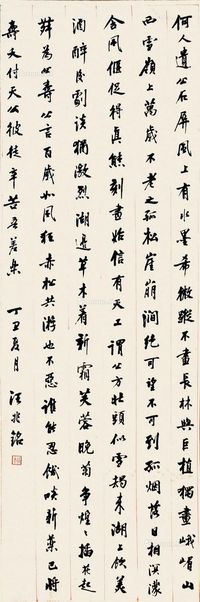 何人遺公石屏風上有水墨希微蹤不畫長林與巨植獨畫峨嵋山
西雪嶺上萬歲不老之孤松崖崩澗絕可望不可到孤煙落日相溟濛
含風偃促得真態刻畫始信有天工謂公方壯頭似雪朅來湖上飲美
酒醉後劇談猶激烈湖邊草木着新霜芙蓉晚菊爭煌煌插花起
舞為公壽公言百歲如風狂赤松共游也不惡誰能忍飢啖新藥已將
壽夭付天公彼徒辛苦吾差樂
丁丑夏月 汪兆銘